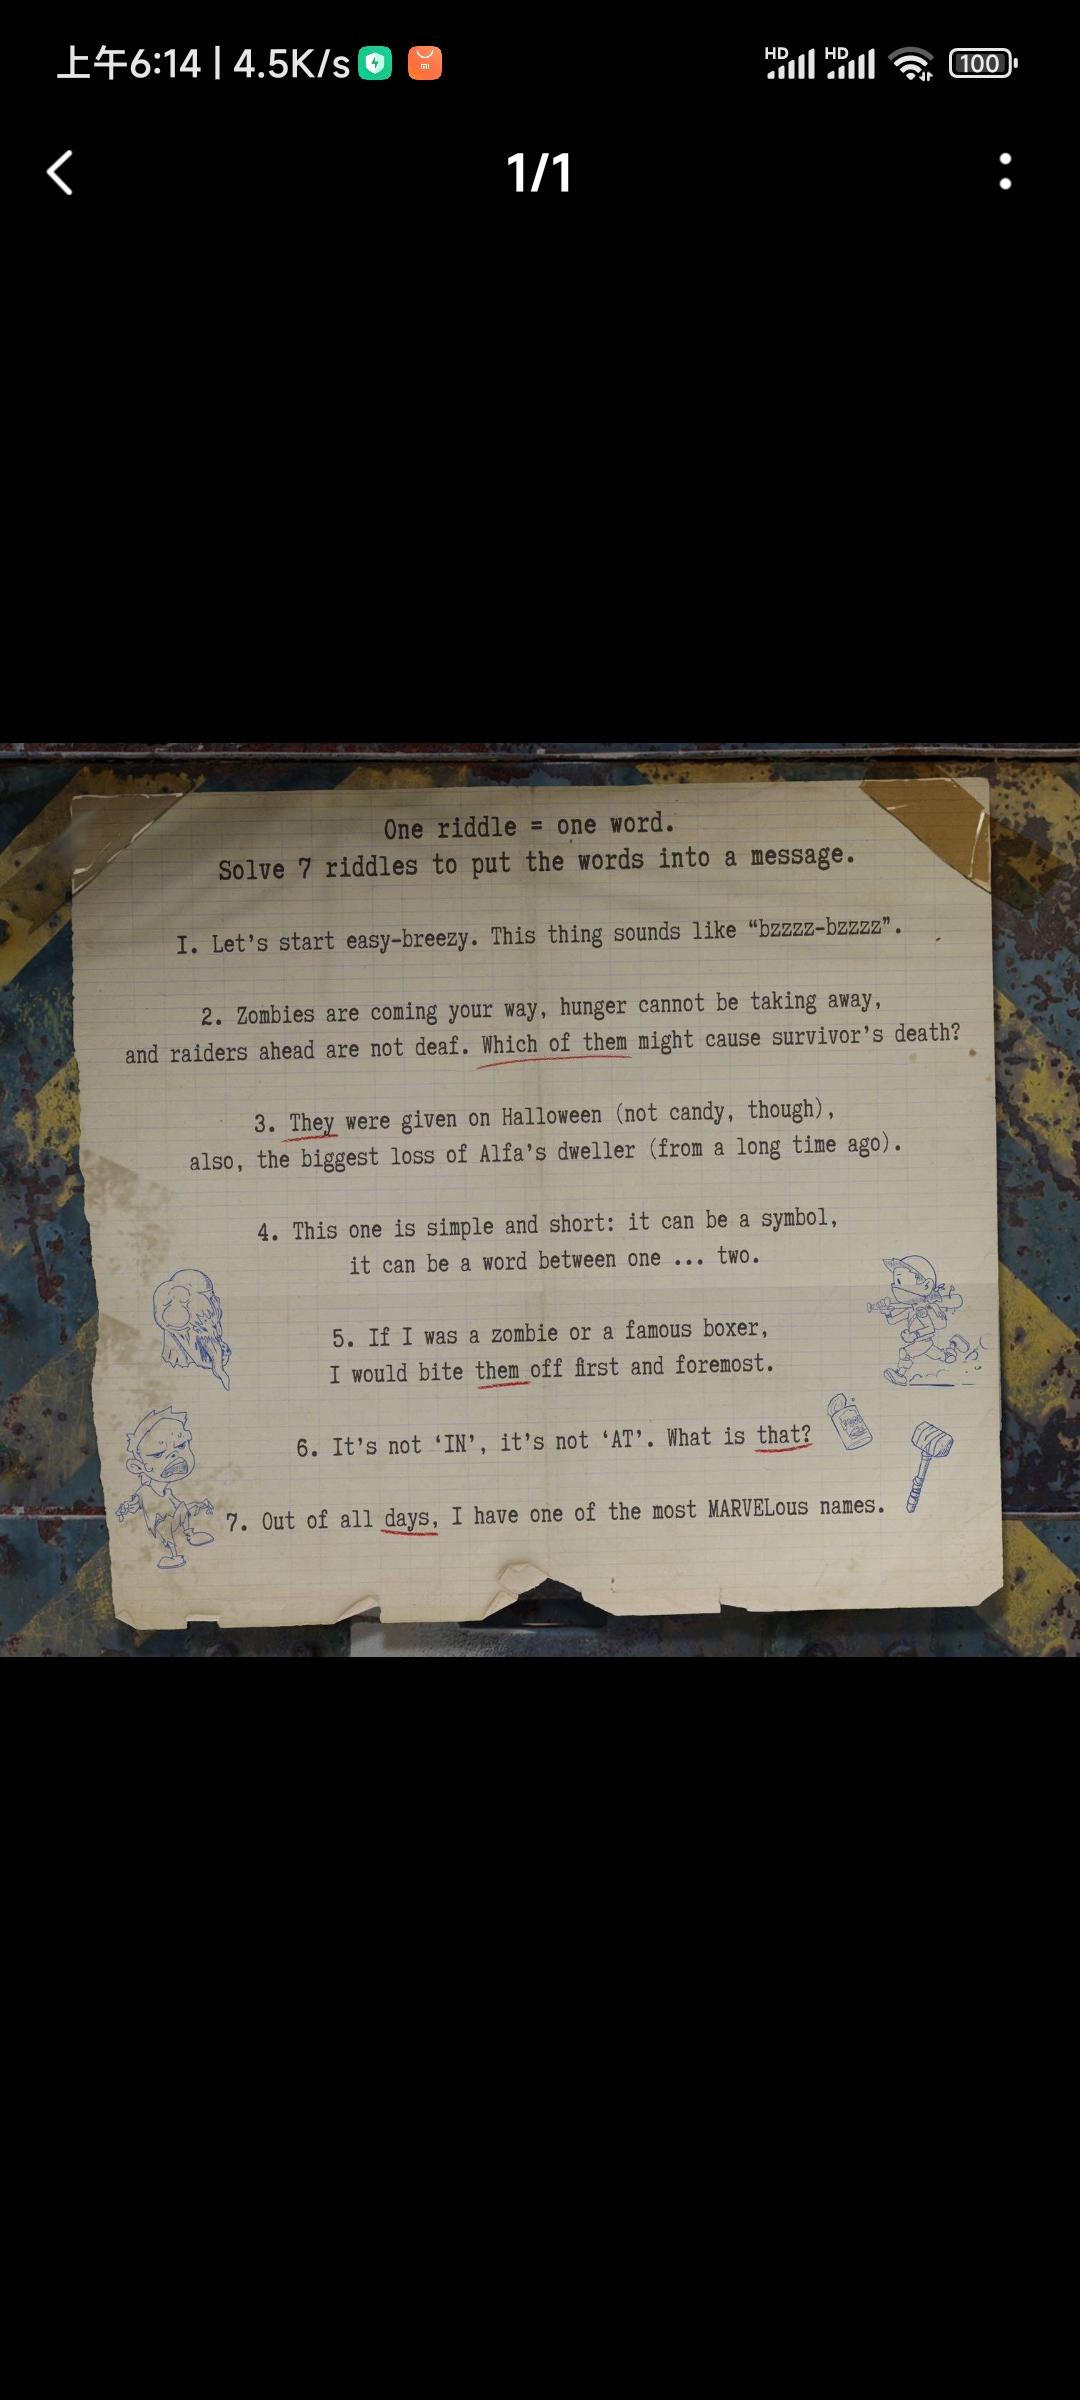 上午6:14 | 4.5K/s
HD HD 100
1/1
One riddle = one word.
Solve 7 riddles to put the words into a message.
I. Let's start easy-breezy. This thing sounds like “bzzzz-bzzzz”.
2. Zombies are coming your way, hunger cannot be taking away,
and raiders ahead are not deaf. Which of them might cause survivor's death?
3. They were given on Halloween (not candy, though),
also, the biggest loss of Alfa's dweller (from a long time ago).
4. This one is simple and short: it can be a symbol,
it can be a word between one ... two.
5. If I was a zombie or a famous boxer,
I would bite them off first and foremost.
6. It's not ‘IN’, it's not ‘AT’. What is that?
7. Out of all days, I have one of the most MARVELous names.